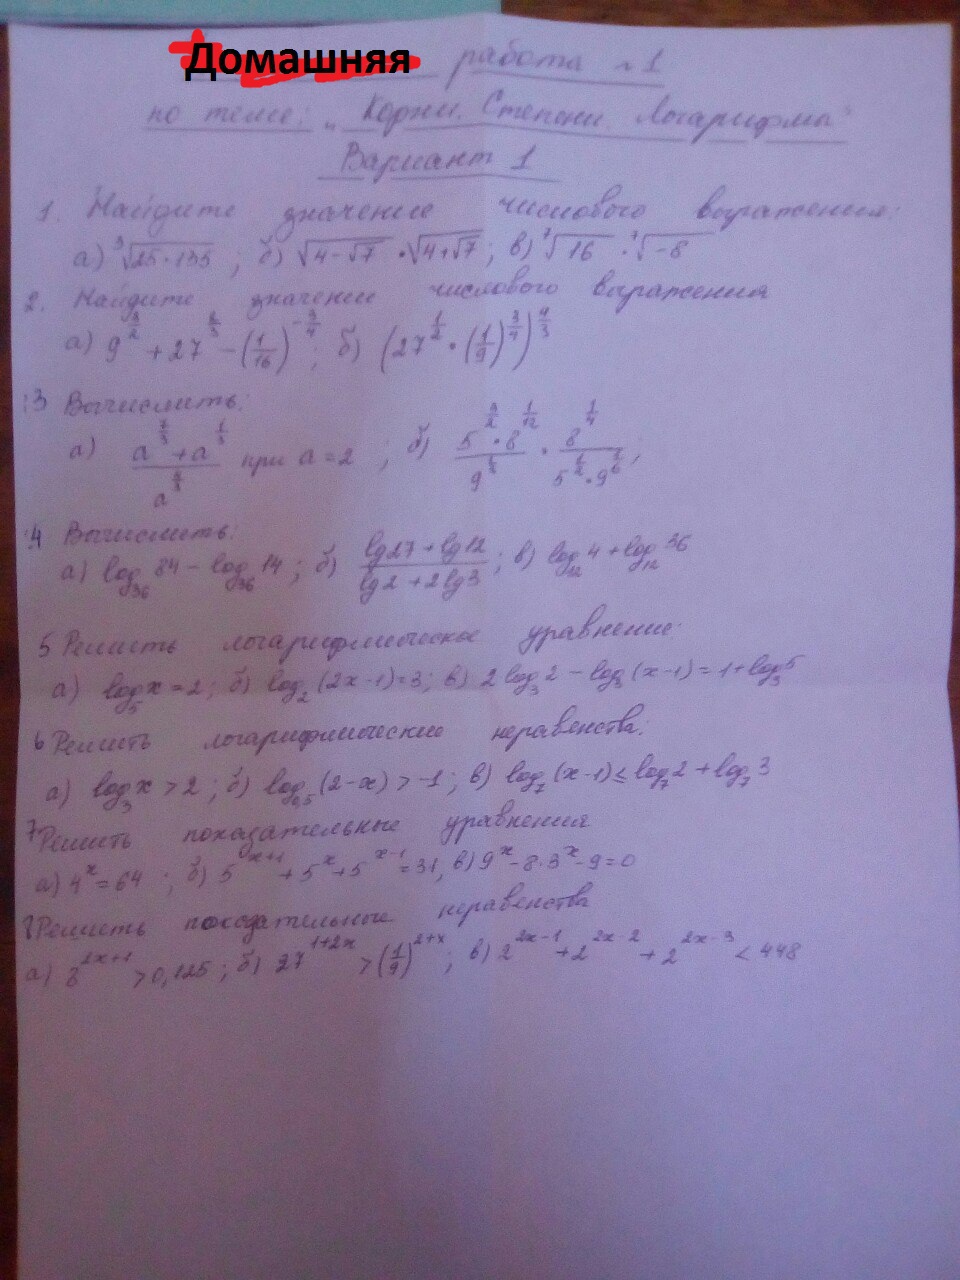 Домашняя работа №1
по теме: „Корни. Степени. Логарифмы"
Вариант 1
1. Найдите значение числового выражения:
а) ∛(25·135) ; б) √(4-√7) · √(4+√7) ; в) √16 · √-8
2. Найдите значение числового выражения
а) 9^(3/2) + 27^(2/3) - (1/16)^(-3/4) ; б) (27^(1/2) · (1/9)^(3/4))^(4/3)
3 Вычислить:
а) (a^(7/3) + a^(1/3)) / a^(4/3) при a = 2 ; б) (5^(3/2) · 8^(1/12)) / 9^(1/3) · 8^(1/4) / (5^(1/2) · 9^(1/6)) ;
4 Вычислить:
а) log₃₆ 84 - log₃₆ 14 ; б) (lg27 + lg12) / (lg2 + 2lg3) ; в) log₁₂ 4 + log₁₂ 36
5 Решить логарифмическое уравнение:
а) log₅ x = 2 ; б) log₂ (2x-1) = 3 ; в) 2 log₃ 2 - log₃ (x-1) = 1 + log₃ 5
6 Решить логарифмические неравенства:
а) log₃ x > 2 ; б) log₀,₅ (2-x) > -1 ; в) log₇ (x-1) ≤ log₇ 2 + log₇ 3
7 Решить показательные уравнения
а) 4^x = 64 ; б) 5^(x+1) + 5^x + 5^(x-1) = 31, в) 9^x - 8·3^x - 9 = 0
8 Решить показательные неравенства
а) 8^(2x+1) > 0,125 ; б) 27^(1+2x) > (1/9)^(2+x) ; в) 2^(2x-1) + 2^(2x-2) + 2^(2x-3) < 448